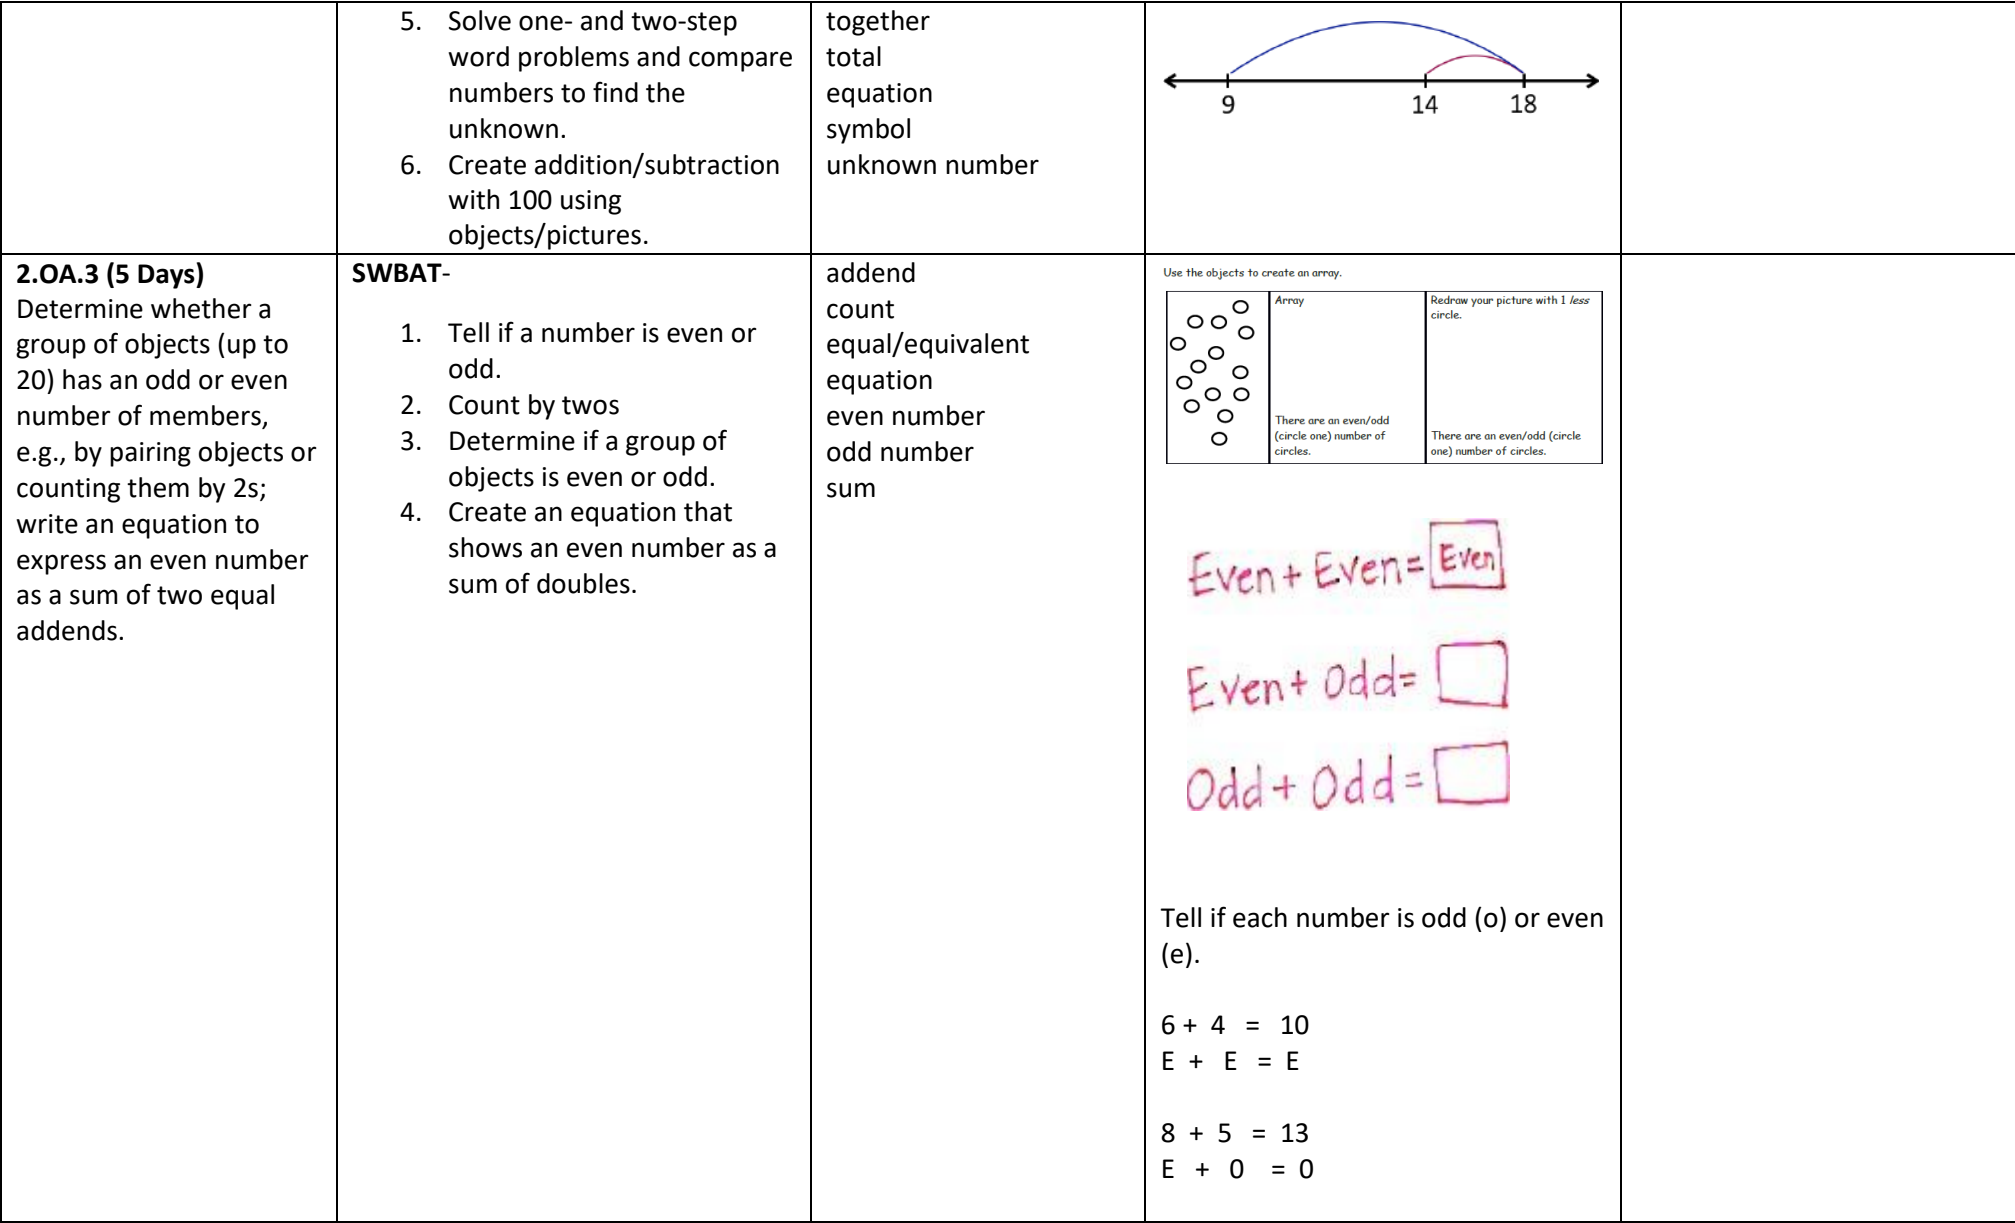 5. Solve one- and two-step
word problems and compare
numbers to find the
unknown.
6. Create addition/subtraction
with 100 using
objects/pictures.
together
total
equation
symbol
unknown number
9 14 18
2.OA.3 (5 Days)
Determine whether a
group of objects (up to
20) has an odd or even
number of members,
e.g., by pairing objects or
counting them by 2s;
write an equation to
express an even number
as a sum of two equal
addends.
SWBAT-
1. Tell if a number is even or
odd.
2. Count by twos
3. Determine if a group of
objects is even or odd.
4. Create an equation that
shows an even number as a
sum of doubles.
addend
count
equal/equivalent
equation
even number
odd number
sum
Use the objects to create an array.
Array
There are an even/odd
(circle one) number of
circles.
Redraw your picture with 1 less
circle.
There are an even/odd (circle
one) number of circles.
Even + Even = Even
Even + Odd =
Odd + Odd =
Tell if each number is odd (o) or even
(e).
6 + 4 = 10
E + E = E
8 + 5 = 13
E + 0 = 0